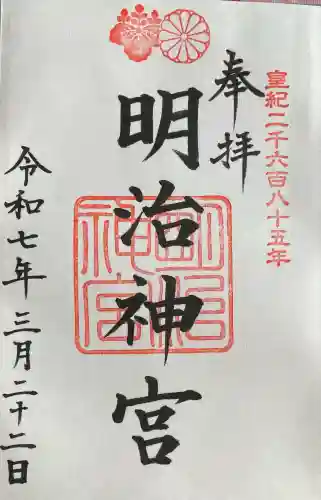 皇紀二千六百八十五年
奉拝
明治神宮
明治神宮
令和七年三月二十二日